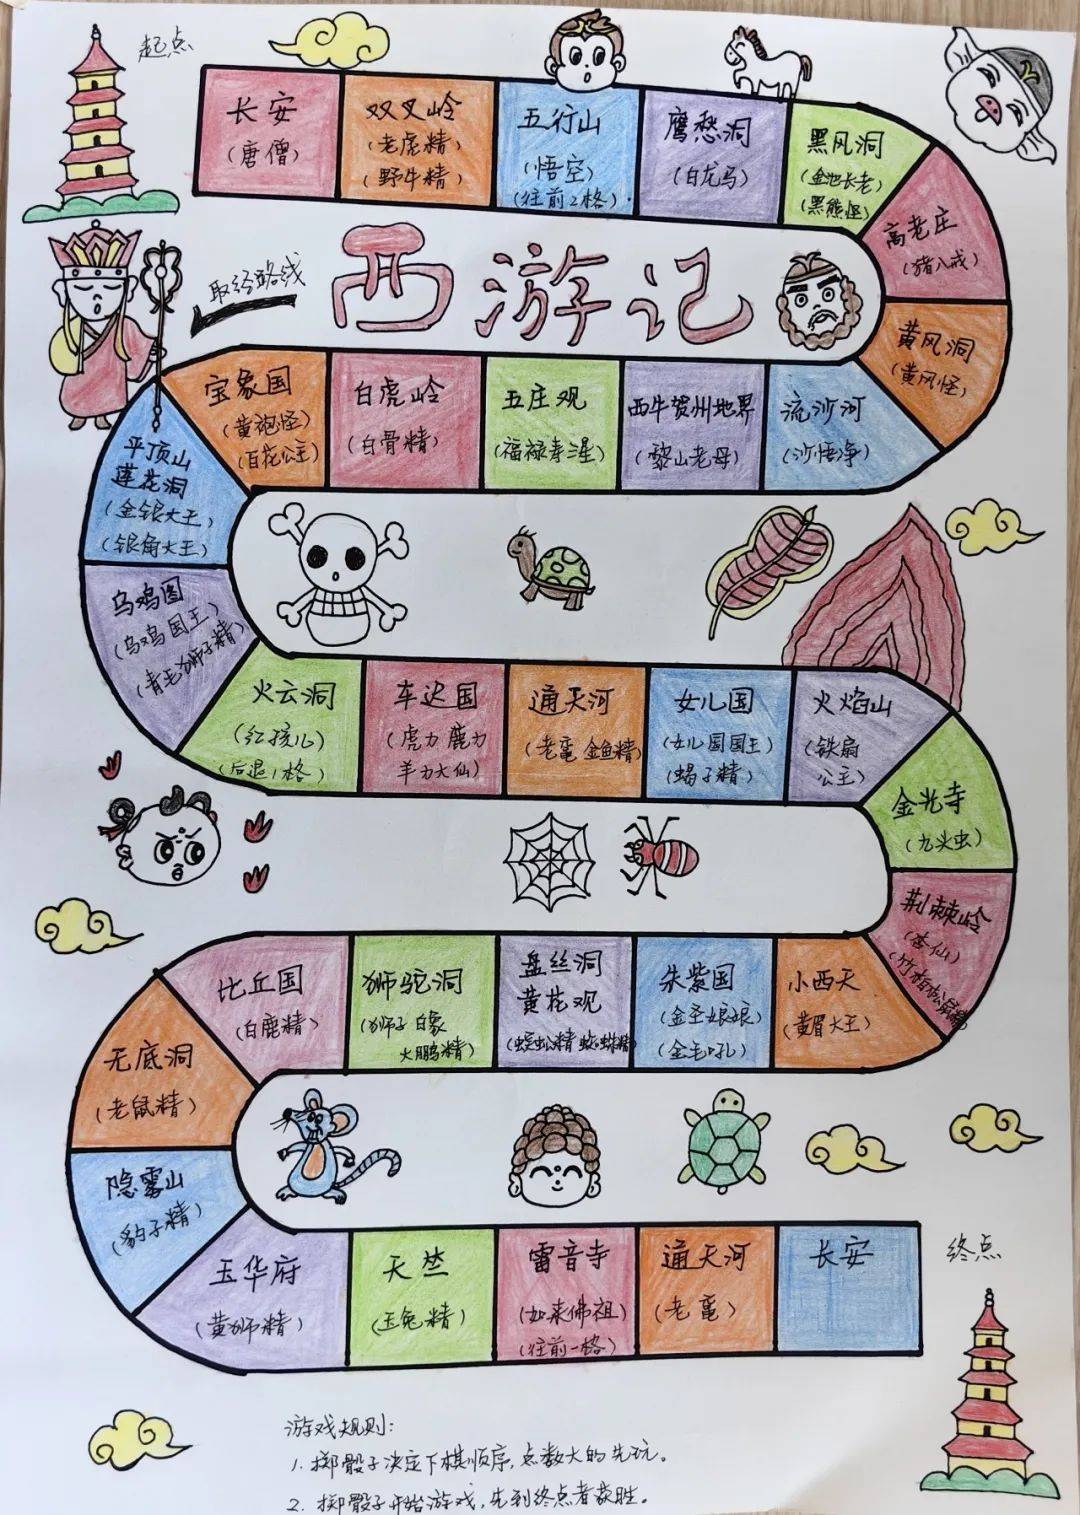 起点
长安
(唐僧)
双叉岭
(老虎精)
(野牛精)
五行山
(悟空)
(往前2格)
鹰愁洞
(白龙马)
黑风洞
(金池长老)
(黑熊怪)
高老庄
(猪八戒)
取经路线
西游记
黄风洞
(黄风怪)
流沙河
(沙悟净)
西牛贺州地界
(黎山老母)
五庄观
(福禄寿星)
白虎岭
(白骨精)
宝象国
(黄袍怪)
(百花公主)
平顶山
莲花洞
(金银大王)
(银角大王)
乌鸡国
(乌鸡国王)
(青毛狮子精)
火云洞
(红孩儿)
(后退1格)
车迟国
(虎力 鹿力
羊力大仙)
通天河
(老鼋 金鱼精)
女儿国
(女儿国国王)
(蝎子精)
火焰山
(铁扇
公主)
金光寺
(九头虫)
荆棘岭
(杏仙)
小西天
(黄眉大王)
朱紫国
(金圣娘娘)
(金毛吼)
盘丝洞
黄花观
(蜈蚣精 蜘蛛精)
狮驼洞
(狮子 白象
大鹏精)
比丘国
(白鹿精)
无底洞
(老鼠精)
隐雾山
(豹子精)
玉华府
(黄狮精)
天竺
(玉兔精)
雷音寺
(如来佛祖)
(往前一格)
通天河
(老鼋)
长安
终点
游戏规则:
1. 掷骰子决定下棋顺序,点数大的先玩。
2. 掷骰子开始游戏,先到终点者获胜。